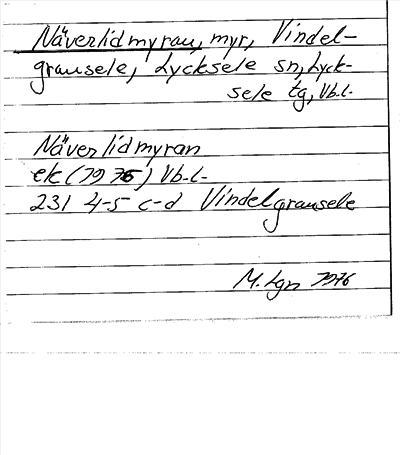 Näverlidmyran, myr, Vindel-
gransele, Lycksele sn, Lyck-
sele tg, Vb.l.
Näverlidmyran
ek (1975) Vb.l.
231 4-5 c-d Vindelgransele
M. Lgn 1976